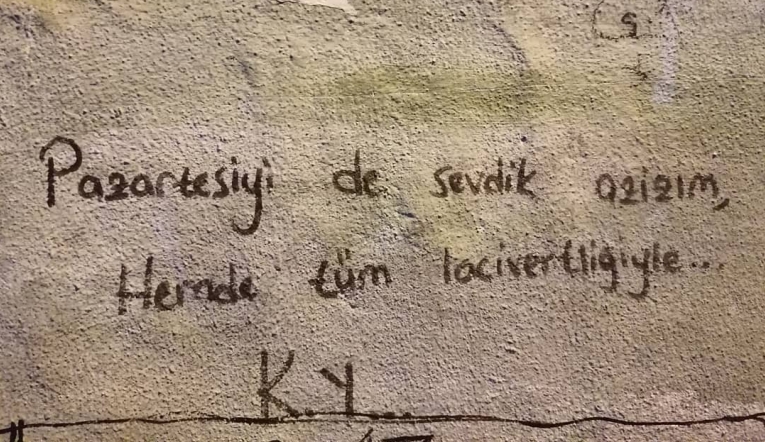 S
Pazartesiyi de sevdik azizim,
Hemde tüm lacivertligiyle...
K.Y...